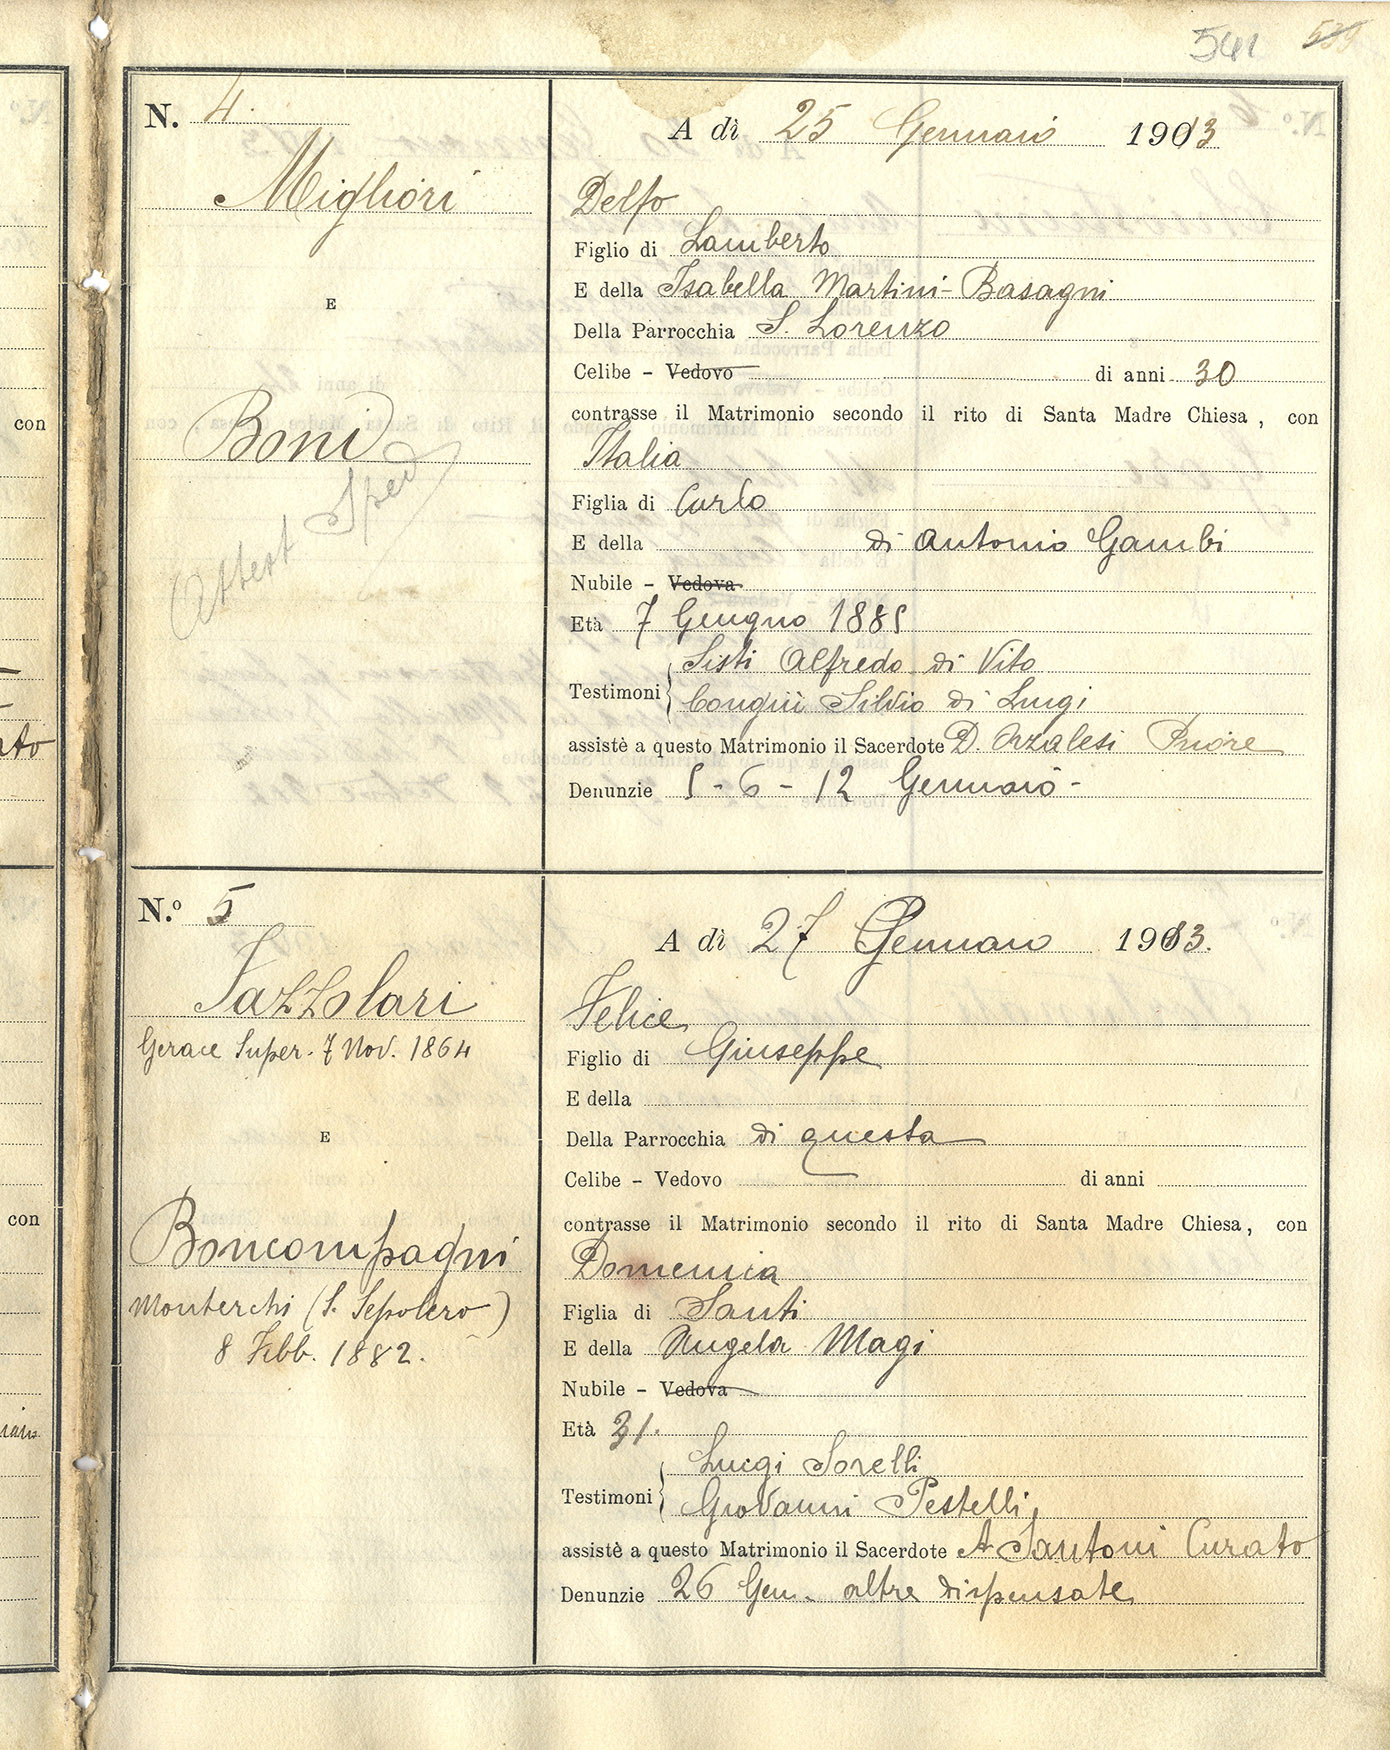 541 539
con
ato
con
N. 4.
Migliori
E
Boni
Attest Sped
A dì 25 Gennaio 1913
Delfo
Figlio di Lamberto
E della Isabella Martini-Basagni
Della Parrocchia S. Lorenzo
Celibe - Vedovo di anni 30
contrasse il Matrimonio secondo il rito di Santa Madre Chiesa, con
Italia
Figlia di Carlo
E della di Antonio Gambi
Nubile - Vedova
Età 7 Giugno 1885
Testimoni Sisti Alfredo di Vito
Silvio di Luigi
assistè a questo Matrimonio il Sacerdote D. Arzalesi Priore
Denunzie 5 - 6 - 12 Gennaio -
N.º 5
Fazzolari
Gerace Super. 7 Nov. 1864
E
Boncompagni
Monterchi (S. Sepolcro)
8 Febb. 1882.
A dì 27 Gennaio 1913.
Felice
Figlio di Giuseppe
E della
Della Parrocchia di questa
Celibe - Vedovo di anni
contrasse il Matrimonio secondo il rito di Santa Madre Chiesa, con
Domenica
Figlia di Santi
E della Angela Magi
Nubile - Vedova
Età 31.
Testimoni Luigi Sorelli
Giovanni Pestelli
assistè a questo Matrimonio il Sacerdote A Santoni Curato
Denunzie 26 Gen. altre dispensate